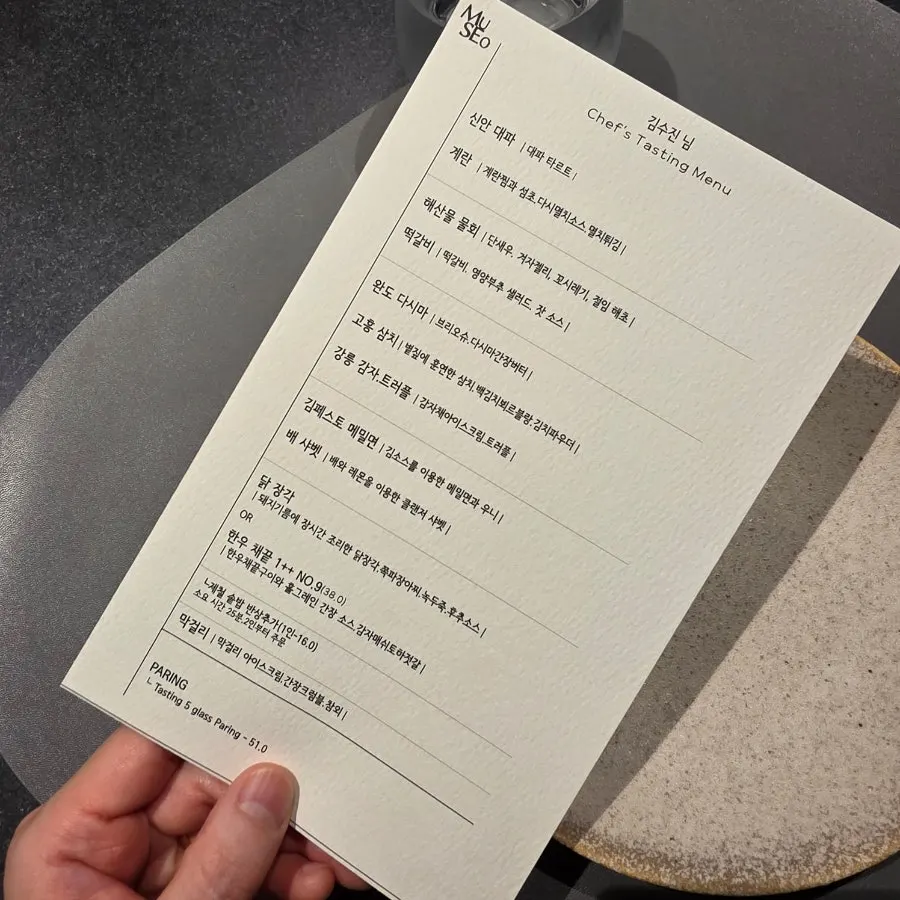 MU
SEO
김수진 님
Chef's Tasting Menu
신안 대파 | 대파 타르트 |
계란 | 계란찜과 섬초.다시멸치소스.멸치튀김 |
해산물 물회 | 단새우. 겨자젤리, 꼬시레기, 절임 해초 |
떡갈비 | 떡갈비. 영양부추 샐러드. 잣 소스 |
완도 다시마 | 브리오슈.다시마간장버터 |
고흥 삼치 | 볏짚에 훈연한 삼치.백김치뵈르블랑.김치파우더 |
강릉 감자.트러플 | 감자채아이스크림.트러플 |
김페스토 메밀면 | 김소스를 이용한 메밀면과 우니 |
배 샤벳 | 배와 레몬을 이용한 클랜저 샤벳 |
닭 장각
| 돼지기름에 장시간 조리한 닭장각.쪽파장아찌.녹두죽.후추소스 |
OR
한우 채끝 1++ NO.9(38.0)
| 한우채끝구이와 홀그레인 간장 소스.감자매쉬토하젓갈 |
ㄴ제철 솥밥 반상추가(1인-16.0)
소요 시간 25분.2인부터 주문
막걸리 | 막걸리 아이스크림.간장크럼블.참외 |
PARING
ㄴ Tasting 5 glass Paring - 51.0